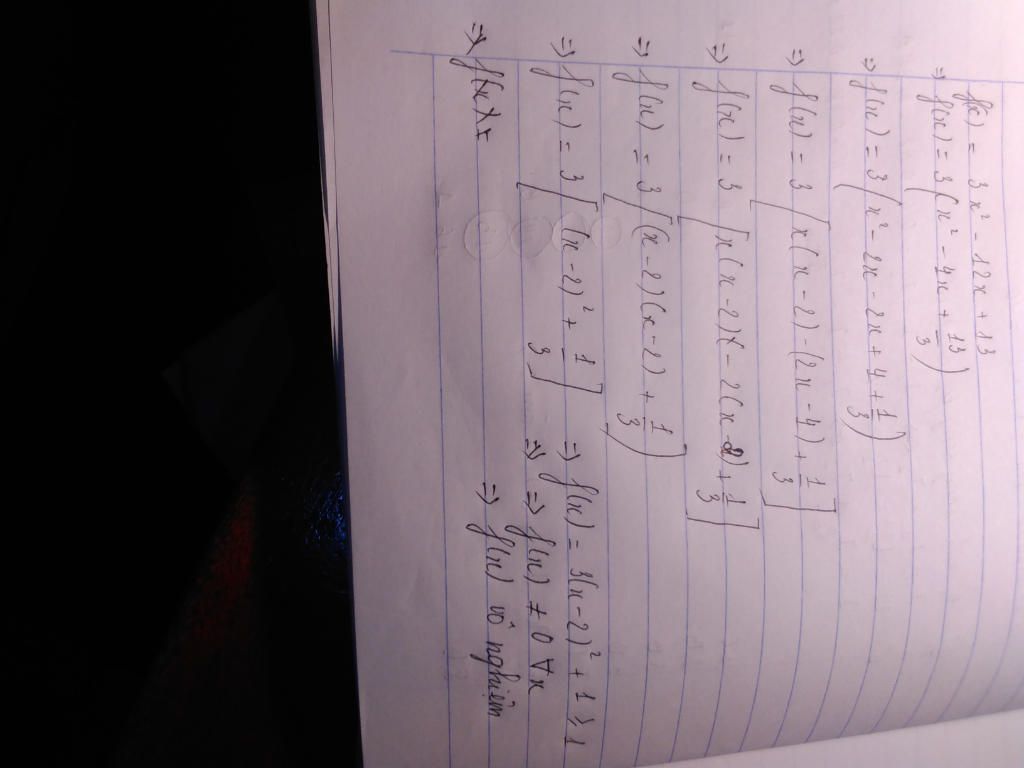 f(x) = 3x² - 12x + 13
⇒ f(x) = 3(x² - 4x + 13/3)
⇒ f(x) = 3(x² - 2x - 2x + 4 + 1/3)
⇒ f(x) = 3[x(x-2) - (2x-4) + 1/3]
⇒ f(x) = 3[x(x-2) - 2(x-2) + 1/3]
⇒ f(x) = 3[(x-2)(x-2) + 1/3]
⇒ f(x) = 3[(x-2)² + 1/3]
⇒ f(x) = 3(x-2)² + 1 ≥ 1
⇒ f(x) ≠ 0 ∀x
⇒ f(x) vô nghiệm